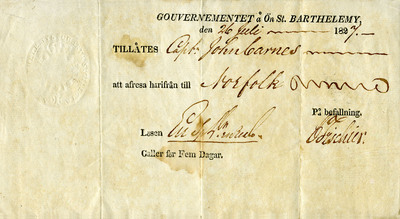 GOUVERNEMENTET å Ön St. BARTHELEMY,
den 26 Juli 1827.
TILLÅTES Capt. John Carnes
att afresa härifrån till Norfolk
På befallning.
Lösen
Galler för Fem Dagar.